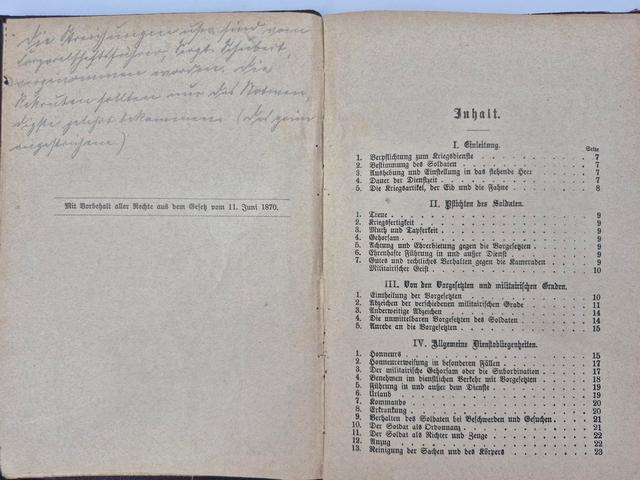 Die Streichungen usw. sind vom
Korporalschaftsführer, Sergt. Schubert,
vorgenommen worden. Die
Rekruten sollten nur das Notwen,
digste gelehrt bekommen (das
angestrichene.)
Mit Vorbehalt aller Rechte aus dem Gesetz vom 11. Juni 1870.
Inhalt.
I. Einleitung.
Seite
1. Verpflichtung zum Kriegsdienste 7
2. Bestimmung des Soldaten 7
3. Aushebung und Einstellung in das stehende Heer 7
4. Dauer der Dienstzeit 7
5. Die Kriegsartikel, der Eid und die Fahne 8
II. Pflichten des Soldaten.
1. Treue 9
2. Kriegsfertigkeit 9
3. Muth und Tapferkeit 9
4. Gehorsam 9
5. Achtung und Ehrerbietung gegen die Vorgesetzten 9
6. Ehrenhafte Führung in und außer Dienst 9
7. Gutes und rechtliches Verhalten gegen die Kameraden 9
Militairischer Geist 10
III. Von den Vorgesetzten und militairischen Graden.
1. Eintheilung der Vorgesetzten 10
2. Abzeichen der verschiedenen militairischen Grade 11
3. Anderweitige Abzeichen 14
4. Die unmittelbaren Vorgesetzten des Soldaten 14
5. Anrede an die Vorgesetzten 15
IV. Allgemeine Dienstobliegenheiten.
1. Honneurs 15
2. Honneurerweisung in besonderen Fällen 17
3. Der militairische Gehorsam oder die Subordination 17
4. Benehmen im dienstlichen Verkehr mit Vorgesetzten 18
5. Führung in und außer dem Dienste 19
6. Urlaub 19
7. Kommando 20
8. Erkrankung 20
9. Verhalten des Soldaten bei Beschwerden und Gesuchen 21
10. Der Soldat als Ordonnanz 21
11. Der Soldat als Richter und Zeuge 22
12. Anzug 22
13. Reinigung der Sachen und des Körpers 23